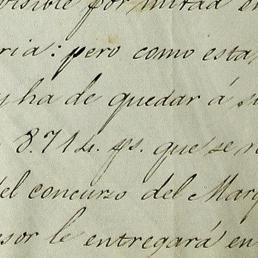 visible por mitad en
ria: pero como esta
ha de quedar á su
8.714. ps. que se
del concurso del Marq
sor le entregará en